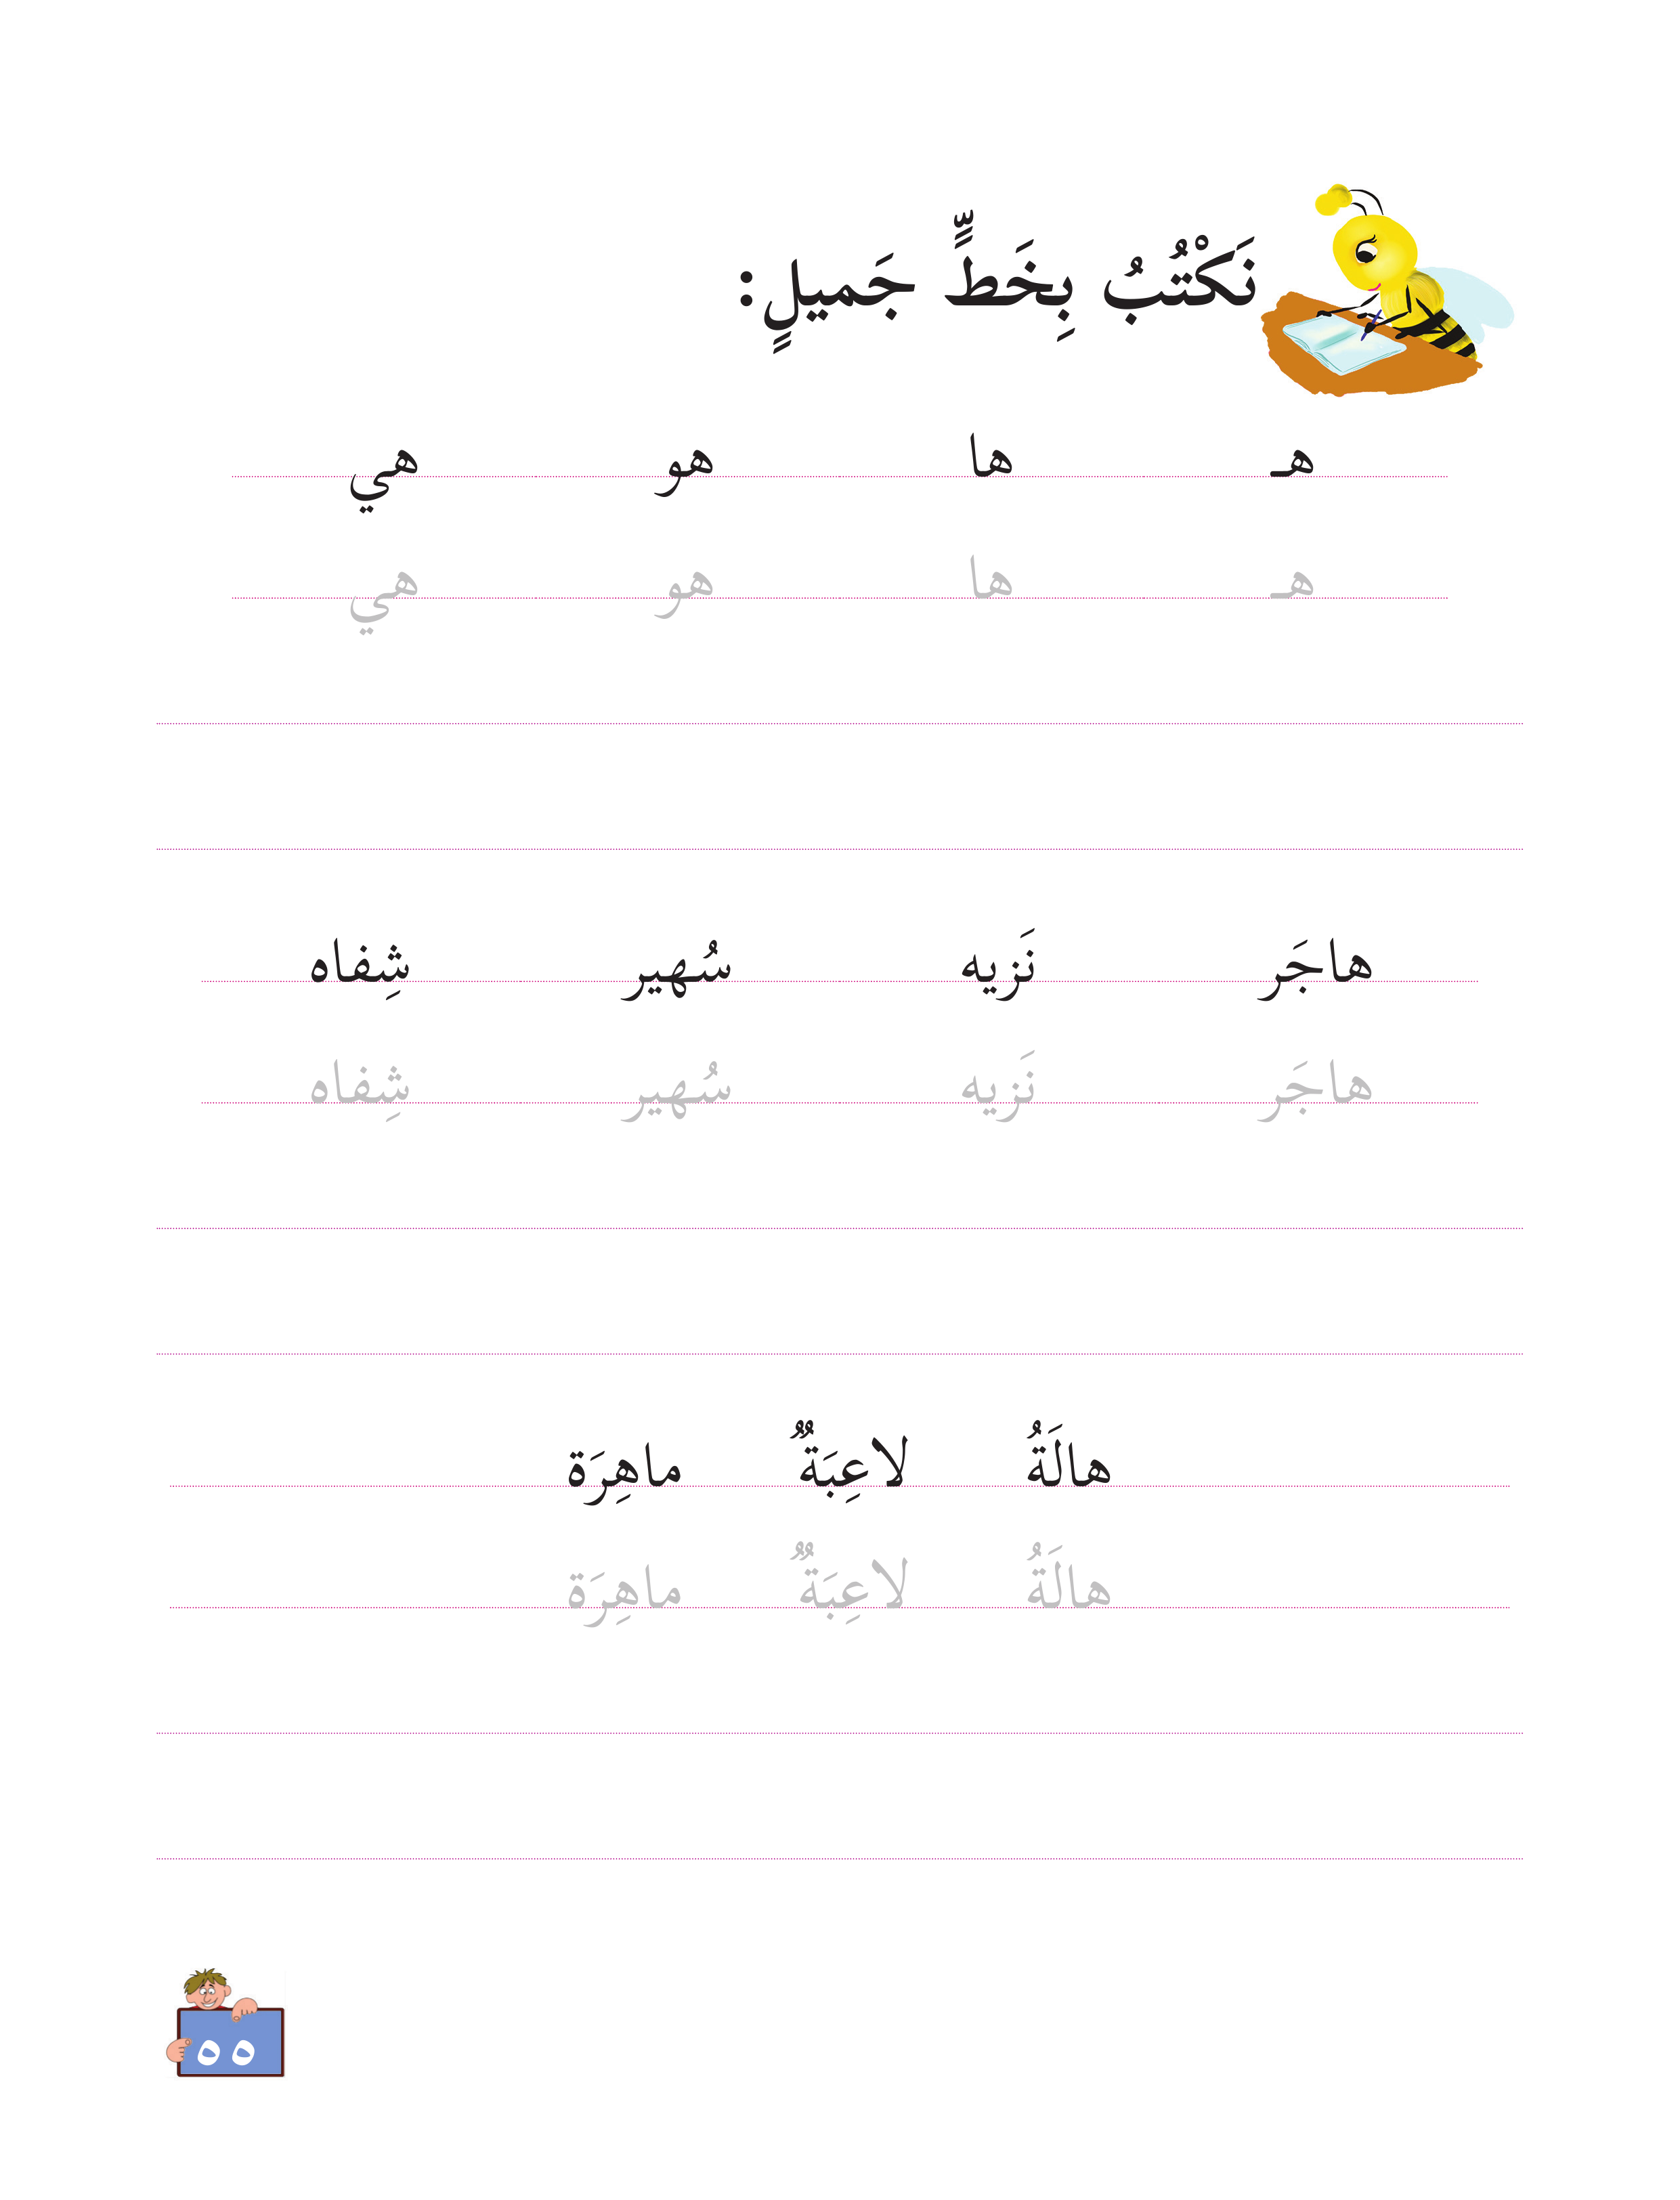 نَكْتُبُ بِخَطٍّ جَميلٍ:
هـ ها هو هي
هـ ها هو هي
هاجَر نَزيه سُهير شِفاه
هاجَر نَزيه سُهير شِفاه
هالَةُ لاعِبَةٌ ماهِرَة
هالَةُ لاعِبَةٌ ماهِرَة
٥٥